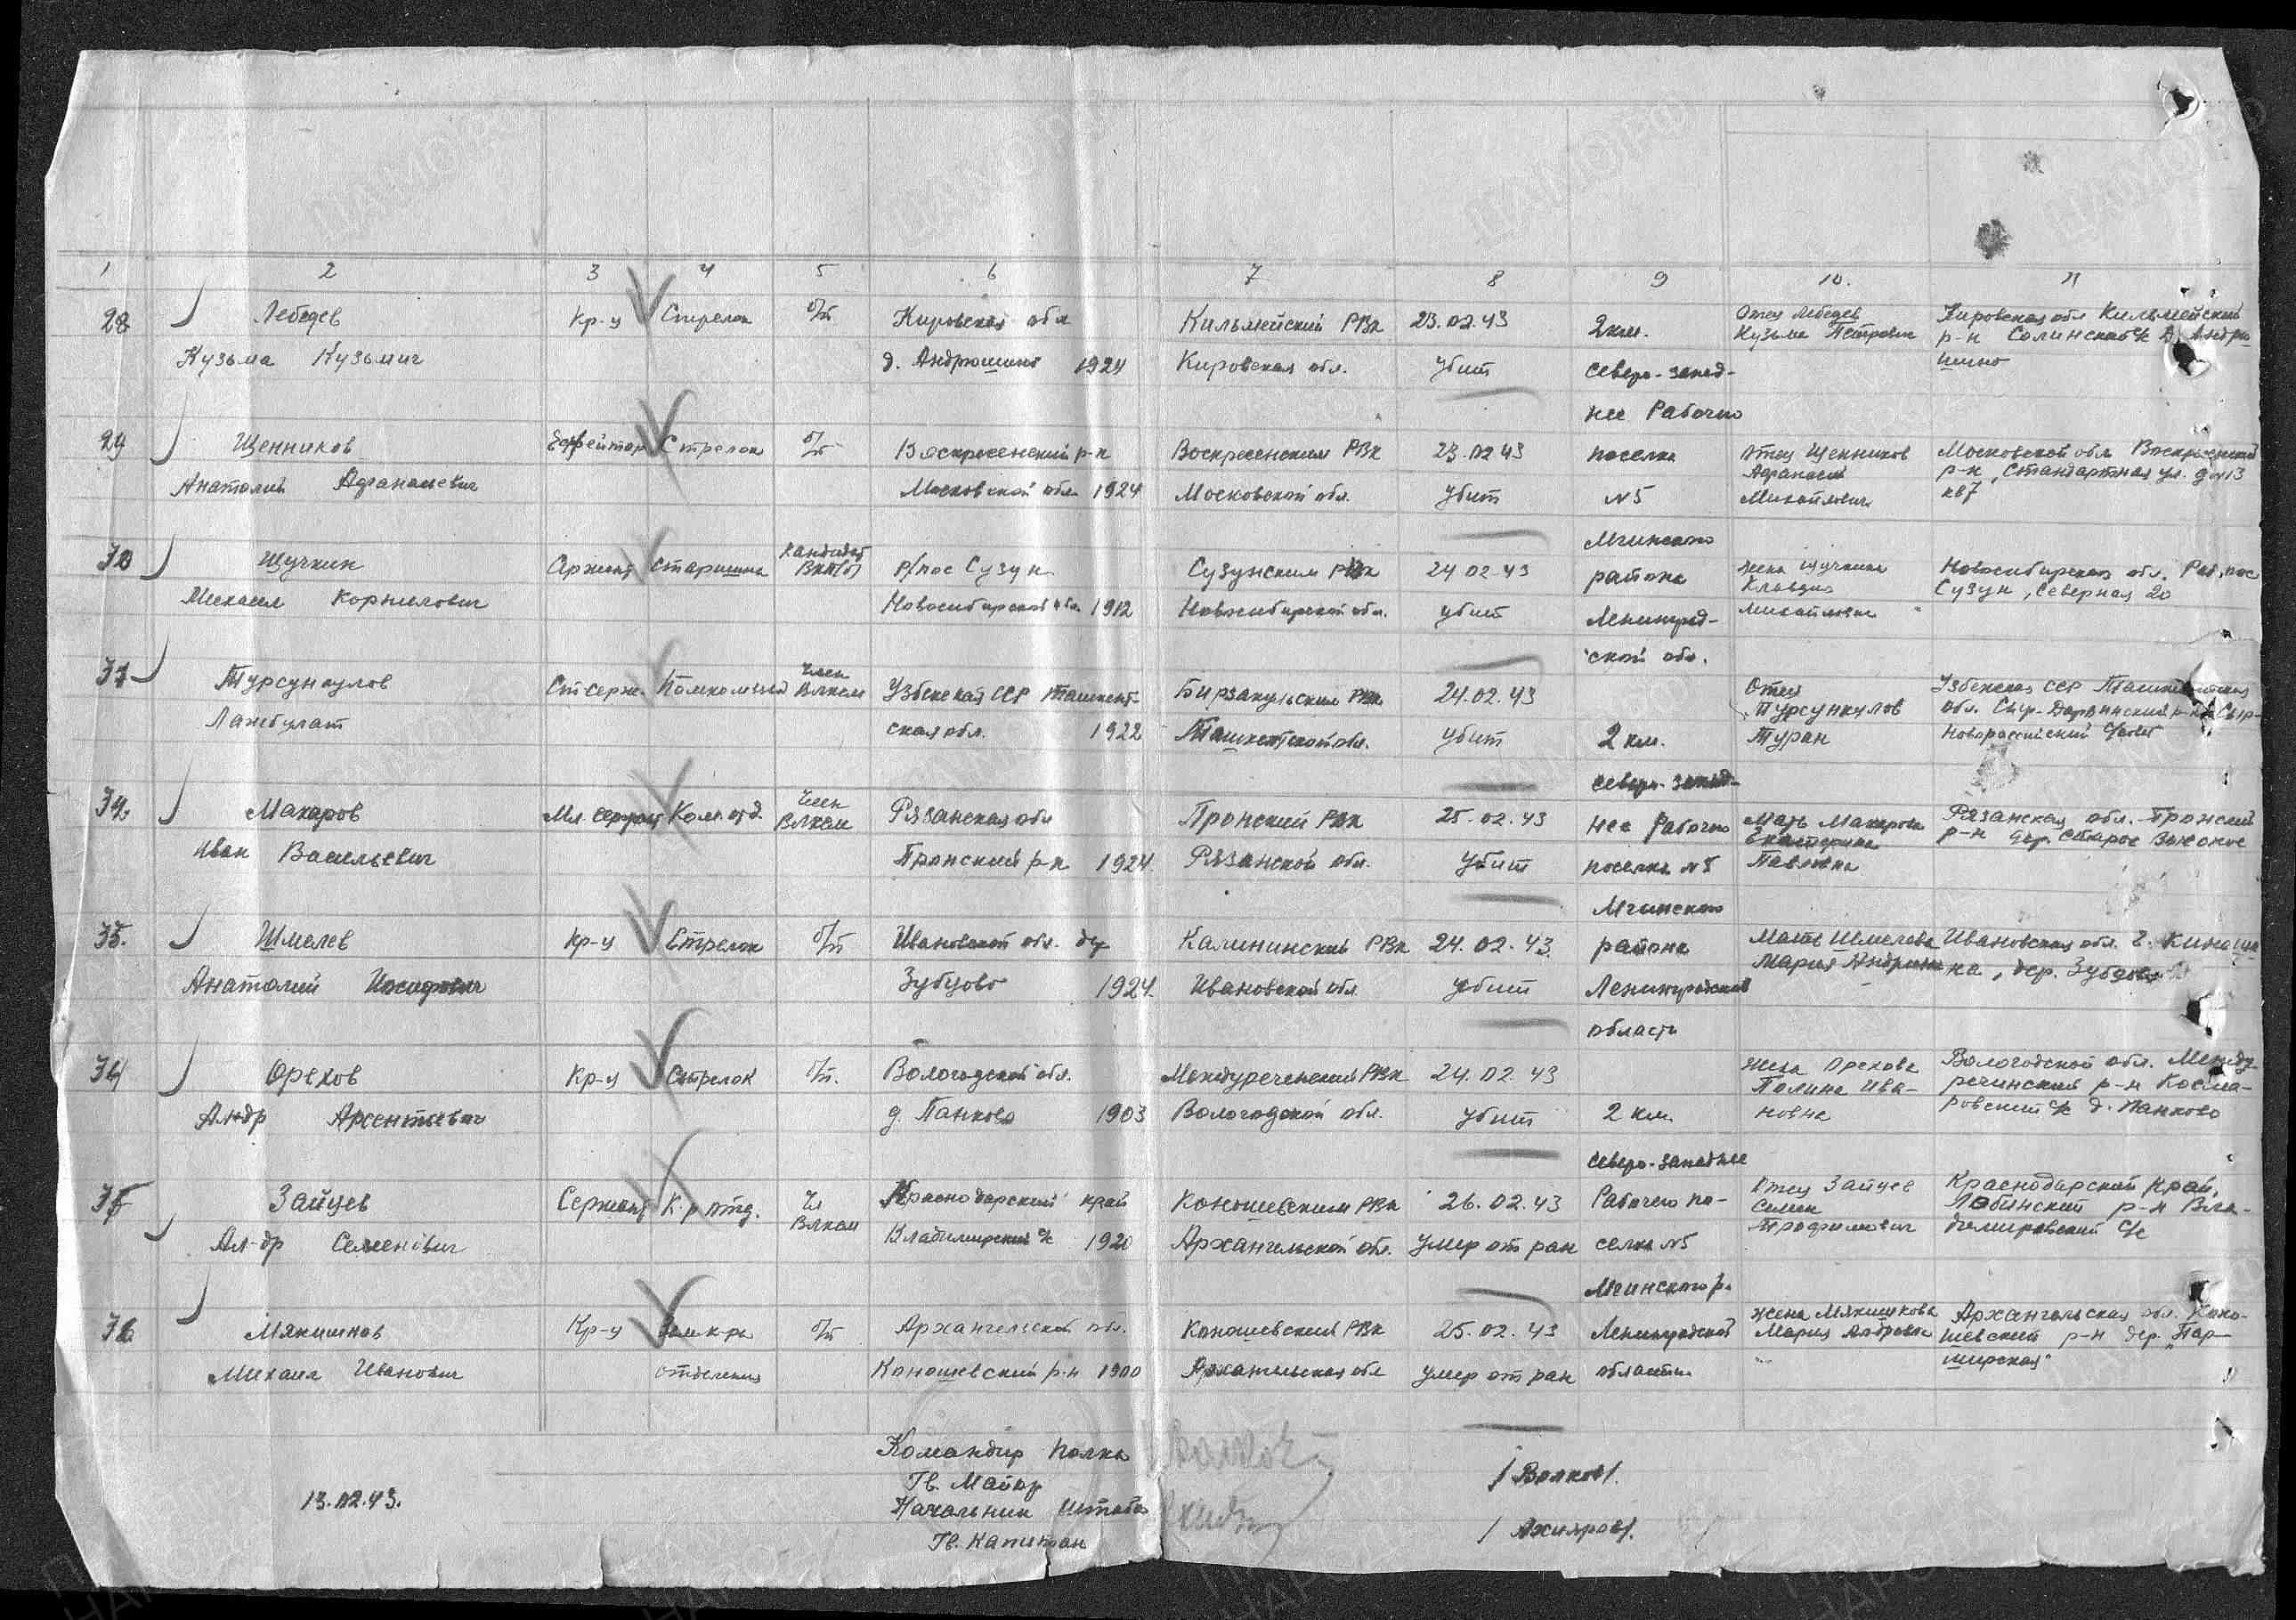 1 2 3 4 5 6 7 8 9 10. 11
28 Лебедев Кр-ц Стрелок б/п Кировская обл Кильмейский РВк 23.02.43 2км. Отец Лебедев Кировская обл Кильмейский
Кузьма Кузьмич д. Андрюшино 1924 Кировская обл. убит северо-запад- Кузьма Петрович р-н Салинский с/с д. Андрю
шино
нее Рабочего
29 Щенников Ефрейтор Стрелок б/п Воскресенский р-н Воскресенским РВк 23.02.43 поселка Отец Щенников Московской обл Воскресенский
Анатолий Афанасьевич Московской обл. 1924 Московской обл. убит №5 Афанасий Михайлович р-н, Стандартная ул. д №13
кв 7
Мгинского
Щучкин Стaршина Кандидат Вкп(б) р/пос Сузун Сузунским РВк 24.02.43 района Жена Щучкина Новосибирская обл. Раб. пос
Михаил Корнилович Новосибирской обл. 1912 Новосибирской обл. убит Ленинград- Клавдия Михайловна Сузун, Северная 20
ской обл.
Турсункулов Ст. серж. Помкомвзвод Член Влксм Узбекская ССР Ташкент- РВк 24.02.43 Отец Узбекская ССР Ташкентская
ская обл. 1922 Ташкентской обл. убит 2 км. Турсункулов обл. Сыр-Дарьинский р-н
Туран Новороссийский с/совет
северо-запад-
Макаров Мл. сержант Ком. отд. Член Влксм Рязанская обл Пронский РВк 25.02.43 нее Рабочего Мать Макарова Рязанская обл. Пронский
Иван Васильевич Пронский р-н 1924 Рязанской обл. убит поселка №5 Екатерина Павловна р-н дер. Старое
Мгинского
35. Шмелев Кр-ц Стрелок б/п Ивановской обл. Калининский РВк 24.02.43 района Мать Шмелева Ивановская обл. г. Кинешма
Анатолий Зубцово 1924 Ивановской обл убит Ленинградской Мария дер. Зубцово
области
Орехов Кр-ц Стрелок б/п. Вологодской обл. Междуреченский РВк 24.02.43 Жена Орехова Вологодской обл. Между
Ал-др Арсентьевич д. Панково 1903 Вологодской обл. убит 2 км. Полина Ива- реченский р-н
новна ровский с/с д. Панково
северо-западнее
Зайцев Сержант К-р отд. Чл Влксм Краснодарский край Коношевским РВк 26.02.43 Рабочего по- Отец Зайцев Краснодарский край,
Ал-др Семенович Владимирский с/с 1920 Архангельской обл. умер от ран селка №5 Семен Трофимович Лабинский р-н Вла-
димировский с/с
Мгинского р.
Мякишнов Кр-ц Зам к-ра б/п Архангельской обл. Коношевский РВк 25.02.43 Ленинградской Жена Архангельская обл. Коно-
Михаил Иванович отделения Коношевский р-н 1900 Архангельская обл умер от ран области Мария шевский р-н дер. „Пар-
ширская“
Командир полка
Гв. Майор /Волков/.
13.02.43. Начальник Штаба
Гв. Капитан